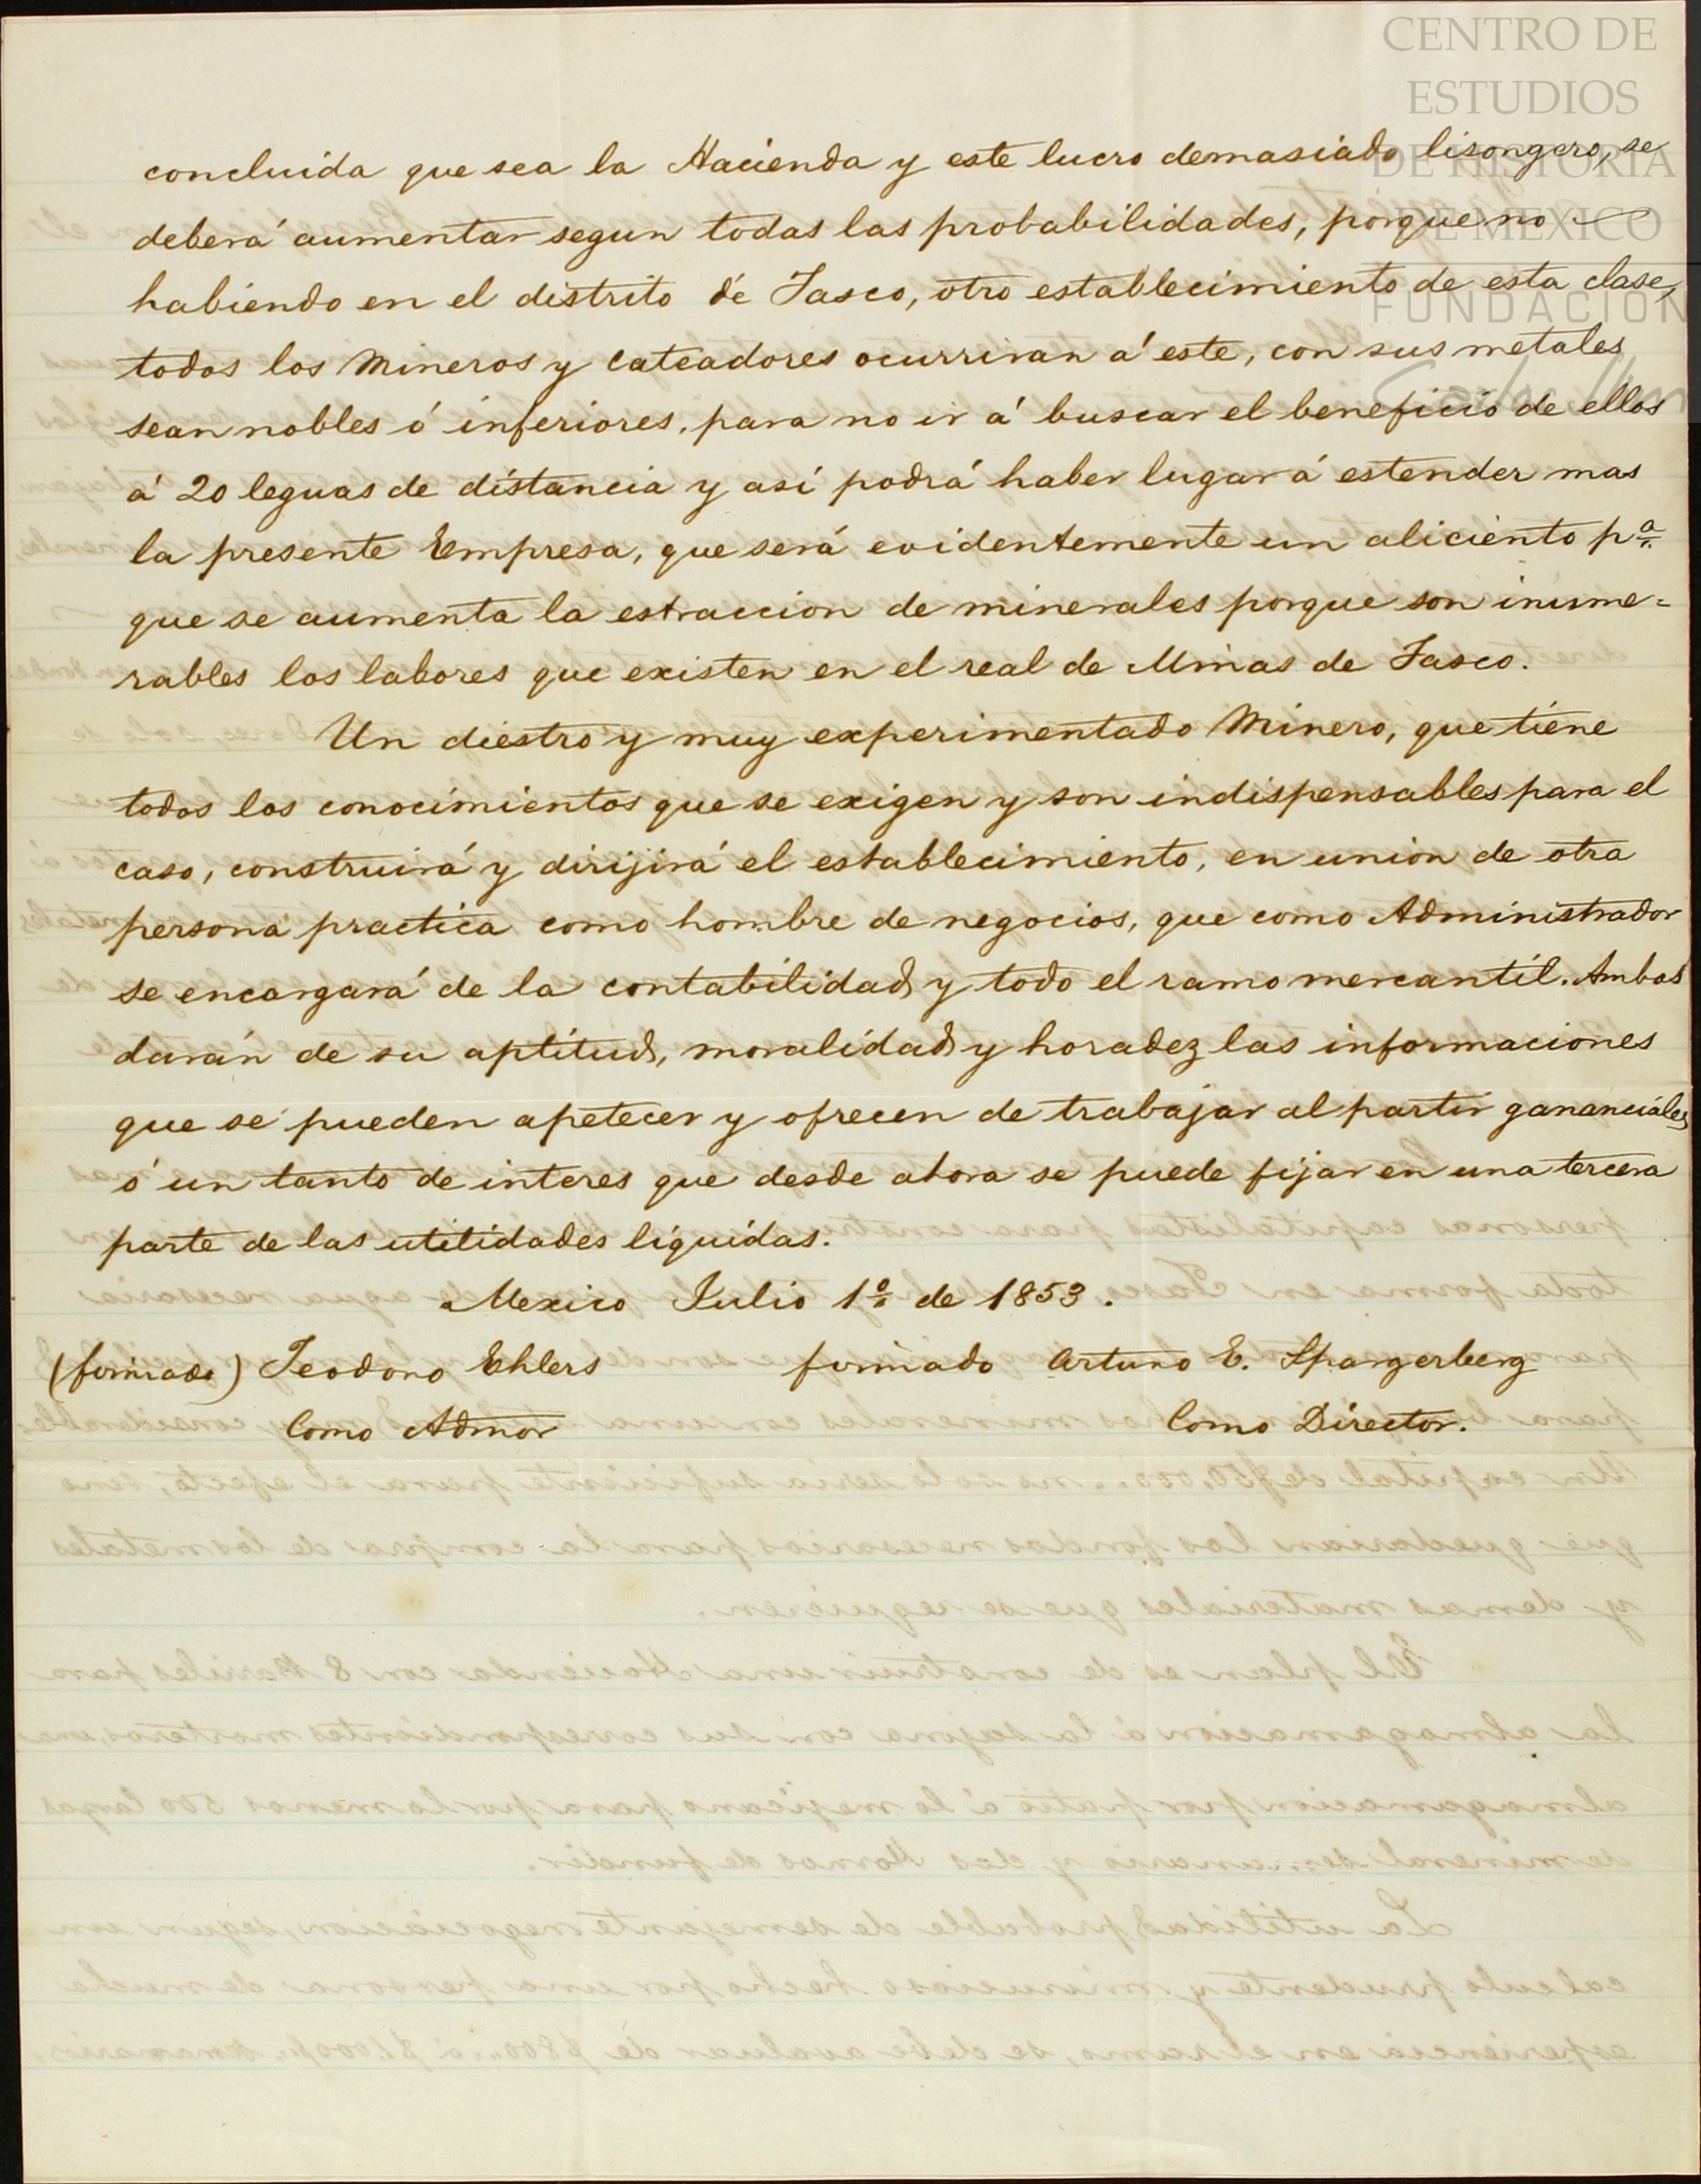 CENTRO DE
ESTUDIOS
DE HISTORIA
DE MEXICO
FUNDACION
concluida que sea la Hacienda y este lucro demasiado lisongero, se
deberá aumentar segun todas las probabilidades, porque no
habiendo en el distrito de Tasco, otro establecimiento de esta clase,
todos los Mineros y Cateadores ocurriran á este, con sus metales
sean nobles ó inferiores, para no ir á buscar el beneficio de ellos
á 20 leguas de distancia y así podrá haber lugar á estender mas
la presente Empresa, que será evidentemente un aliciento pª.
que se aumenta la estraccion de minerales porque son inume=
rables los labores que existen en el real de Minas de Tasco.
Un diestro y muy experimentado Minero, que tiene
todos los conocimientos que se exigen y son indispensables para el
caso, construirá y dirijirá el establecimiento, en union de otra
persona practica como hombre de negocios, que como Administrador
se encargará de la contabilidad y todo el ramo mercantil. Ambos
darán de su aptitud, moralidad y horadez las informaciones
que se pueden apetecer y ofrecen de trabajar al partir gananciales
ó un tanto de interes que desde ahora se puede fijar en una tercera
parte de las utilidades líquidas.
Mexico Julio 1º de 1853.
(firmado) Teodoro Ehlers firmado Arturo E. Spangerberg
Como Admor Como Director.